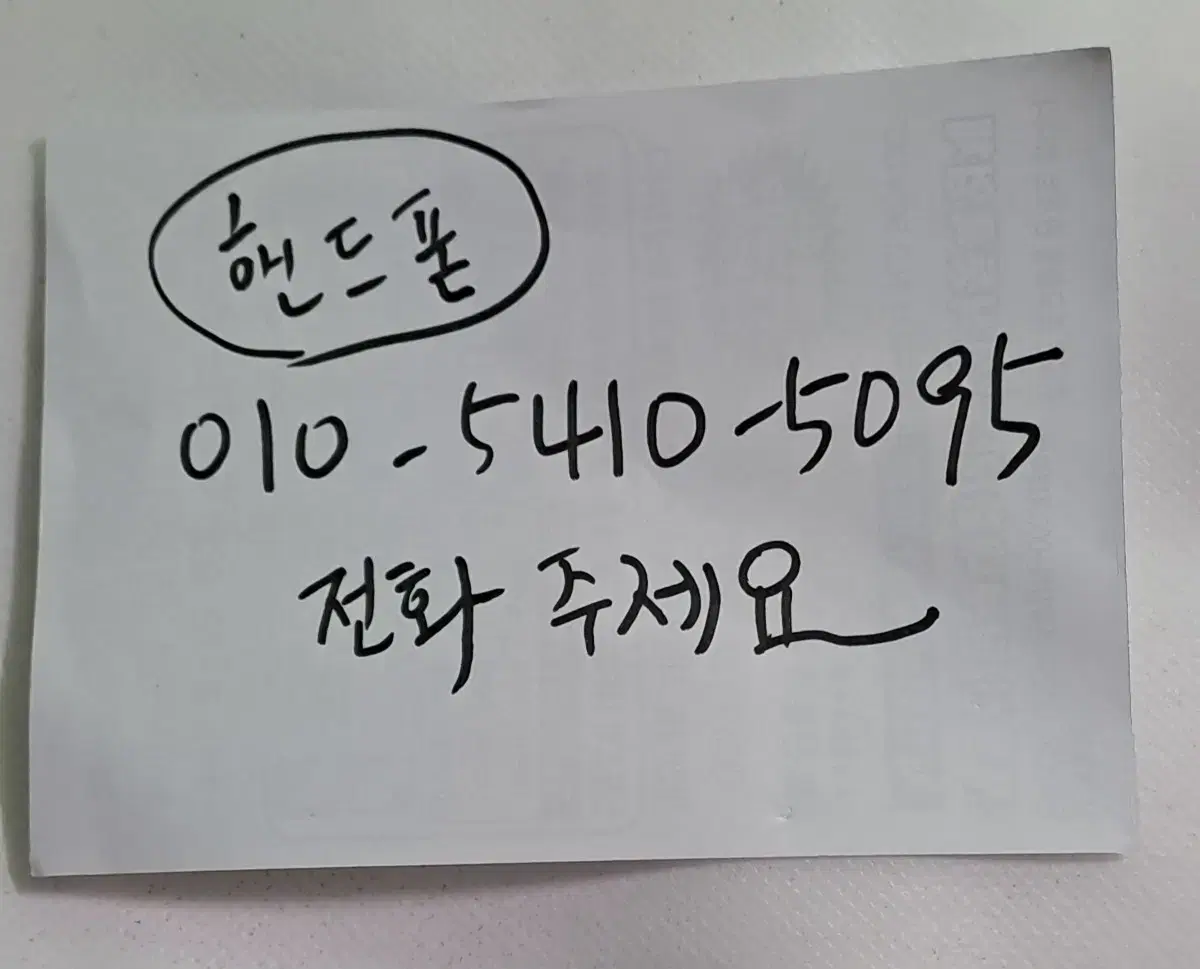 핸드폰
010-5410-5095
전화 주제요